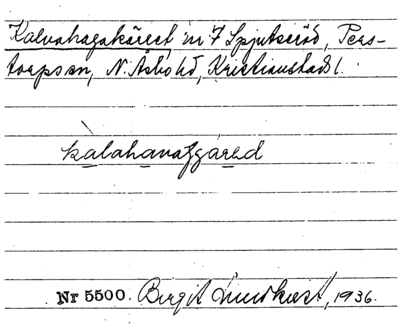 Kalvahagakärret nr 7 Spjutseröd, Pers-
torps sn, N. Åsbo hd, Kristianstads l.
kàlahanafgáred
Nr 5500. Birgit Lundkvist, 1936.